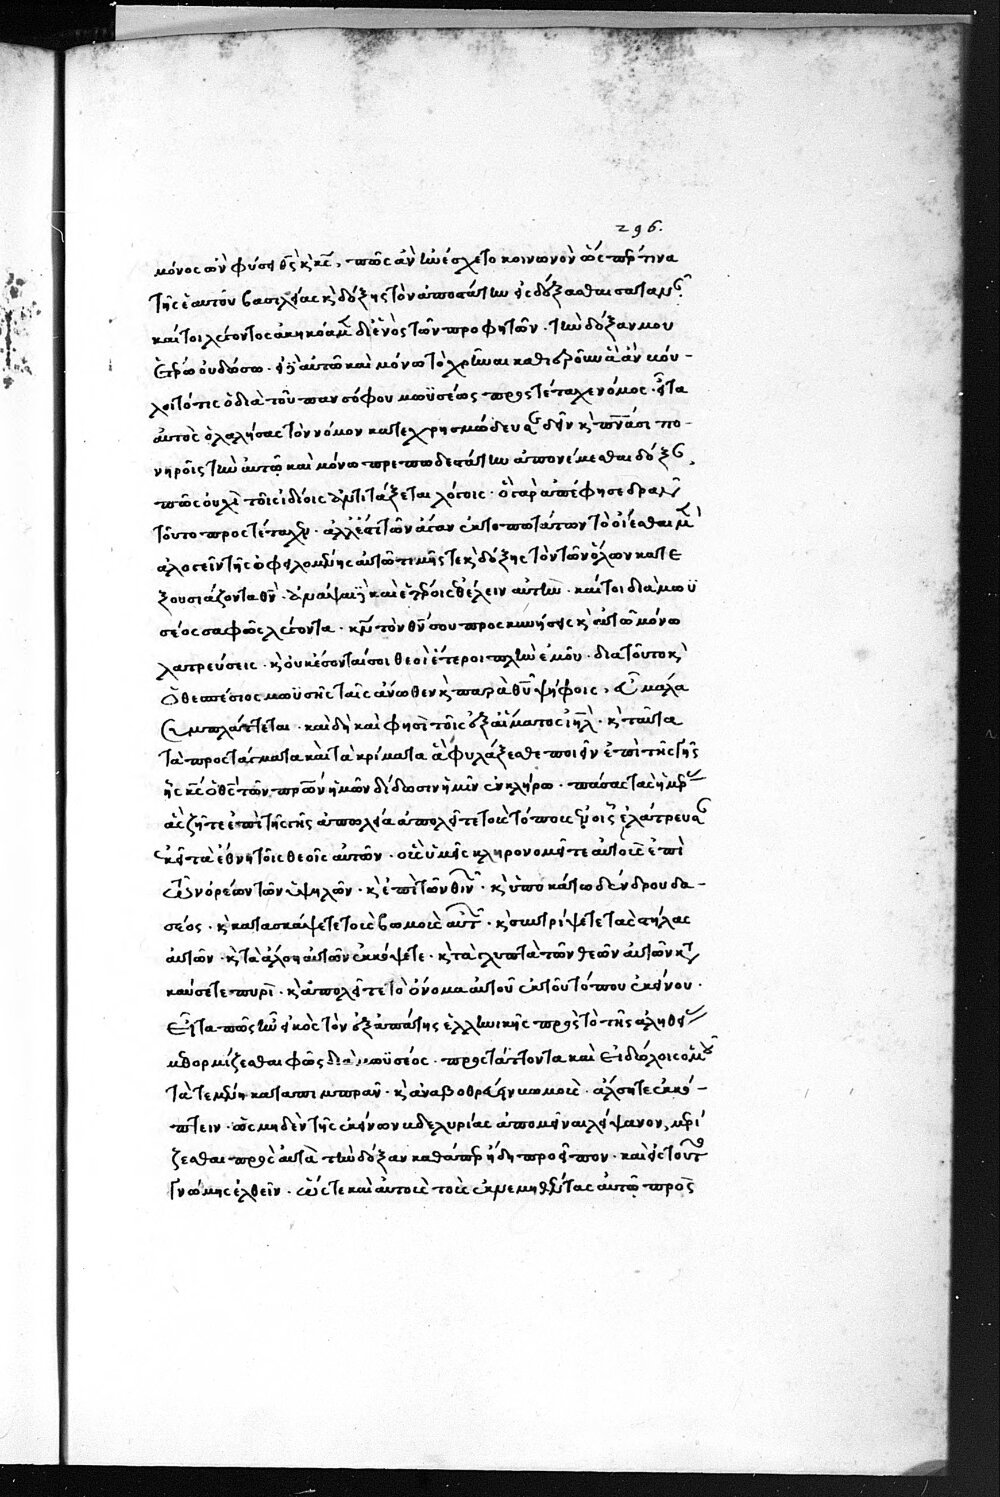 296.
μόνος ὢν φύσει θς κ κς, πῶς ἂν ἠνέσχετο κοινωνὸν ὥσπερ τινα
τῆς ἑαυτοῦ βασιλείας κ δόξης τὸν ἀποστάτην εἰσδέξασθαι σατανᾶν
καίτοι λέγοντος ἀκηκόαμεν δι ἑνὸς τῶν προφητῶν · τὴν δόξαν μου
ἑτέρω οὐ δώσω · ὅτι αὐτῶ καὶ μόνω τὸ χρῆναι
λοιτό τις ὁ διὰ τοῦ πανσόφου μωϋσέως προστέταχε νόμος · εἶτα
αὐτὸς ὁ λαλήσας τὸν νόμον κατεχρησμώδευσε δεῖν κ πνασι πο-
νηροῖς τὴν αὐτῶ καὶ μόνω πρεπωδεστάτην ἀπονέμεσθαι δόξαν,
πῶς οὐχὶ τοῖς ἰδίοις ἀντιτάξεται λόγοις · ὃ γὰρ ἀπέφησε δρᾶν
τοῦτο προστέταχεν · ἀλλ ἔστι τῶν ἄγαν ἐκτοπωτάτων τὸ οἴεσθαι μὲν
ἀλογεῖν τῆς ὀφειλομένης αὐτῶ τιμῆς τε κ δόξης τὸν τῶν ὅλων κατε
ξουσιάζοντα θν · ἀνάψαι καὶ ἑτέροις θέλειν αὐτὴν · καίτοι διὰ μωϋ
σέος σαφῶς λέγοντα · κν τὸν θν σου προσκυνήσεις κ αὐτῶ μόνω
λατρεύσεις · κ οὐκ ἔσονται σοι θεοὶ ἕτεροι πλὴν ἐμοῦ · διὰ τοῦτο κ
ὁ θεσπέσιος μωϋσῆς ταῖς ἄνωθεν κ παρὰ θυ ψήφοις, εὖ μάλα
συμπλάττεται · καὶ δὴ καὶ φησὶ τοῖς ἐξ αἵματος ιηλ · κ ταῦτα
τὰ προστάγματα καὶ τὰ κρίματα ἃ φυλάξεσθε ποιεῖν ἐπὶ τῆς γῆς
ἧς κς ὁ θς τῶν πρων ἡμῶν δίδωσιν ἡμῖν ἐν κλήρω · πάσας τὰς ἡμέρας
ἃς ζῆτε ἐπὶ τῆς γῆς ἀπωλεία ἀπολεῖτε τοὺς τόπους ἐν οἷς ἐλάτρευσαν
ἐκεῖ τὰ ἔθνη τοῖς θεοῖς αὐτῶν · οὓς ὑμεῖς κληρονομεῖτε αὐτοὺς ἐπὶ
τῶν ὀρέων τῶν ὑψηλῶν · κ ἐπὶ τῶν θινῶν · κ ὑποκάτω δένδρου δα-
σέος · κ κατασκάψετε τοὺς βωμοὺς αὐτῶν · κ συντρίψετε τὰς στήλας
αὐτῶν · κ τὰ ἄλση αὐτῶν ἐκκόψετε · κ τὰ γλυπτὰ τῶν θεῶν αὐτῶν κατα
καύσετε πυρὶ · κ ἀπολεῖτε τὸ ὄνομα αὐτοῦ ἐκ τοῦ τόπου ἐκείνου ·
εἶτα πῶς ἦν εἰκὸς τὸν ἐξ ἀπάτης ἑλληνικῆς πρὸς τὸ τῆς ἀληθείας
μεθορμίζεσθαι φῶς διὰ μωϋσέος · προστάττοντα καὶ εἰδώλοις ὁμοῦ
τὰ τεμένη καταπιμπρᾶν · κ ἀναβοθρεύειν βωμοὺς · ἄλση τε ἐκκό-
πτειν · ὡς μηδὲν τῆς ἐκείνων βδελυρίας ἀπομεῖναι λείψανον, μερί
ζεσθαι πρὸς αὐτὰ τὴν δόξαν καθάπερ ἤδη προεῖπον · καὶ εἰς τοῦτο
γνώμης ἐλθεῖν · ὥστε καὶ αὐτοὺς τοὺς ἐκμεμηνότας αὐτῶ πρὸς